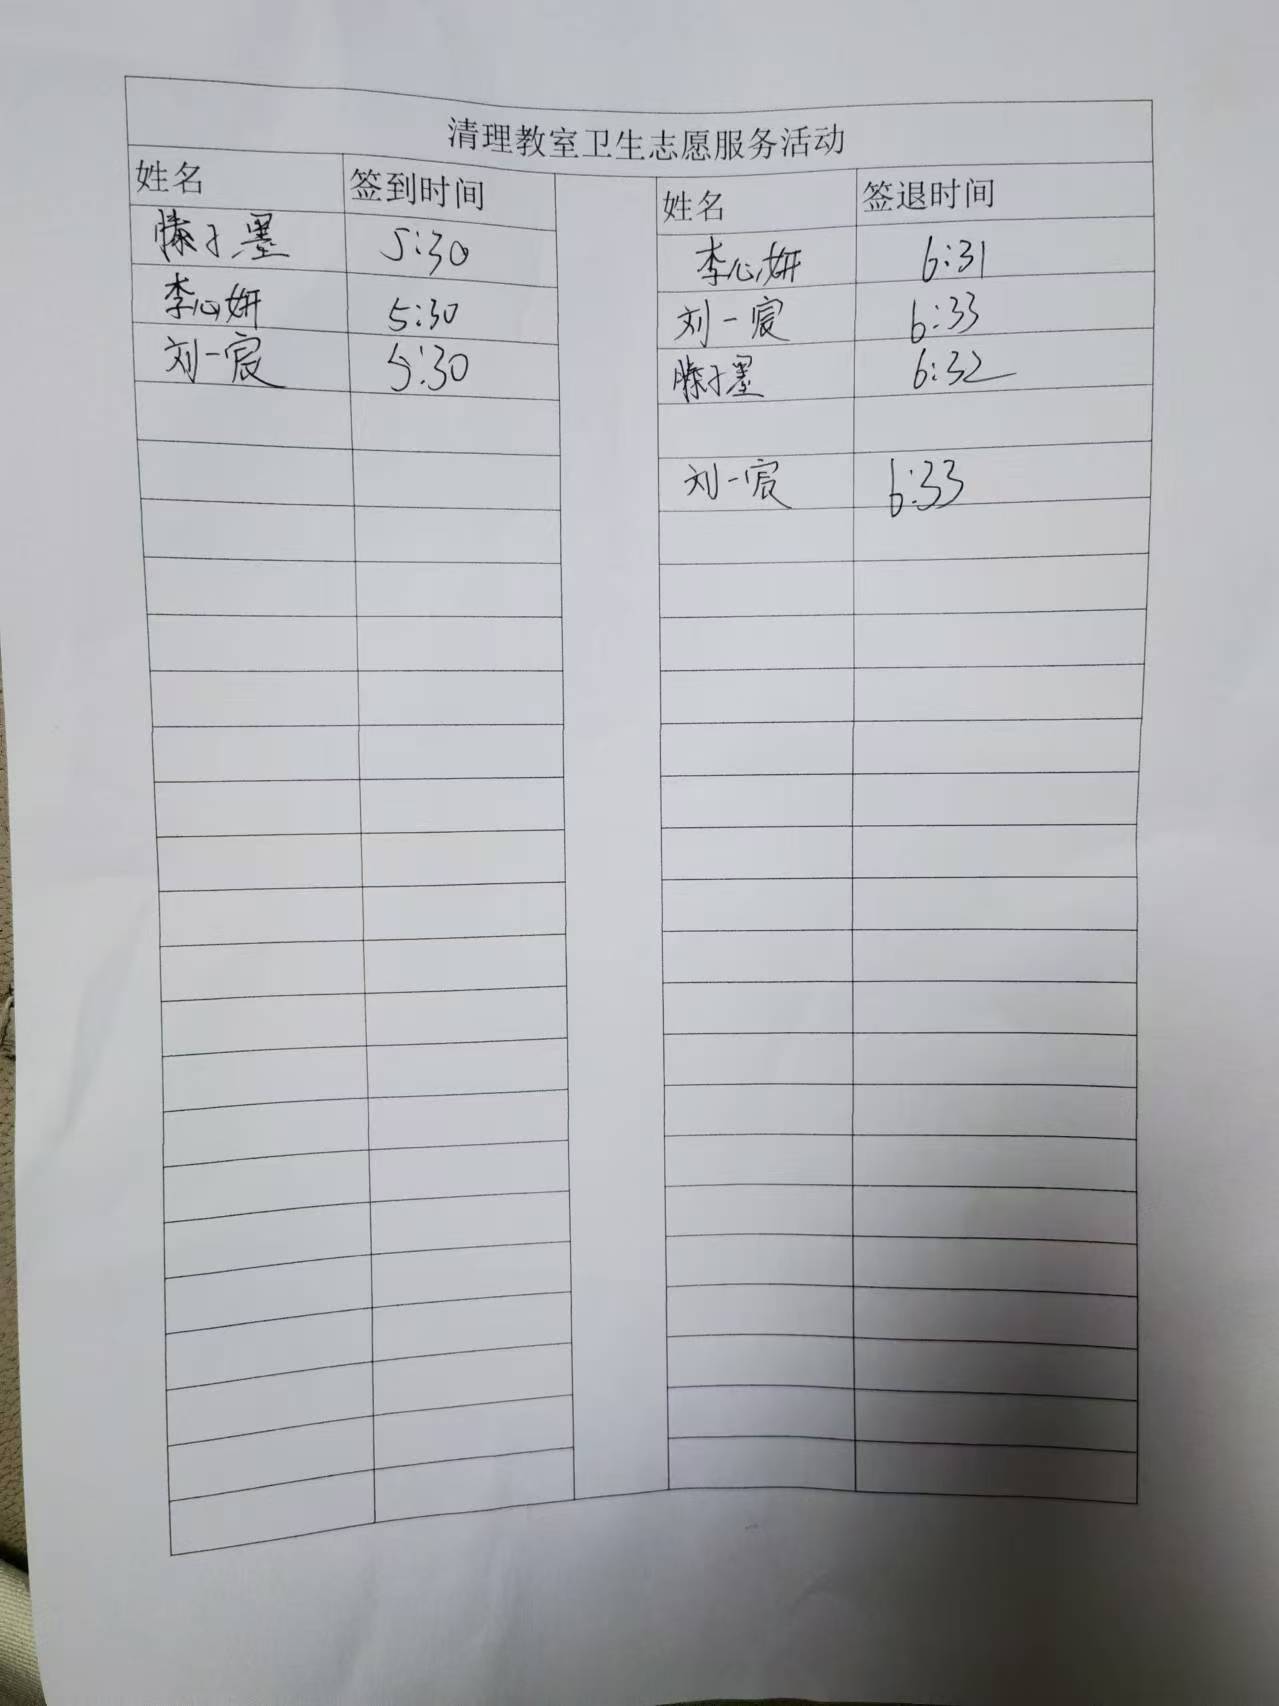 清理教室卫生志愿服务活动
姓名 签到时间 姓名 签退时间
滕子墨 5:30 李心妍 6:31
李心妍 5:30 刘一宸 6:33
刘一宸 5:30 滕子墨 6:32
刘一宸 6:33